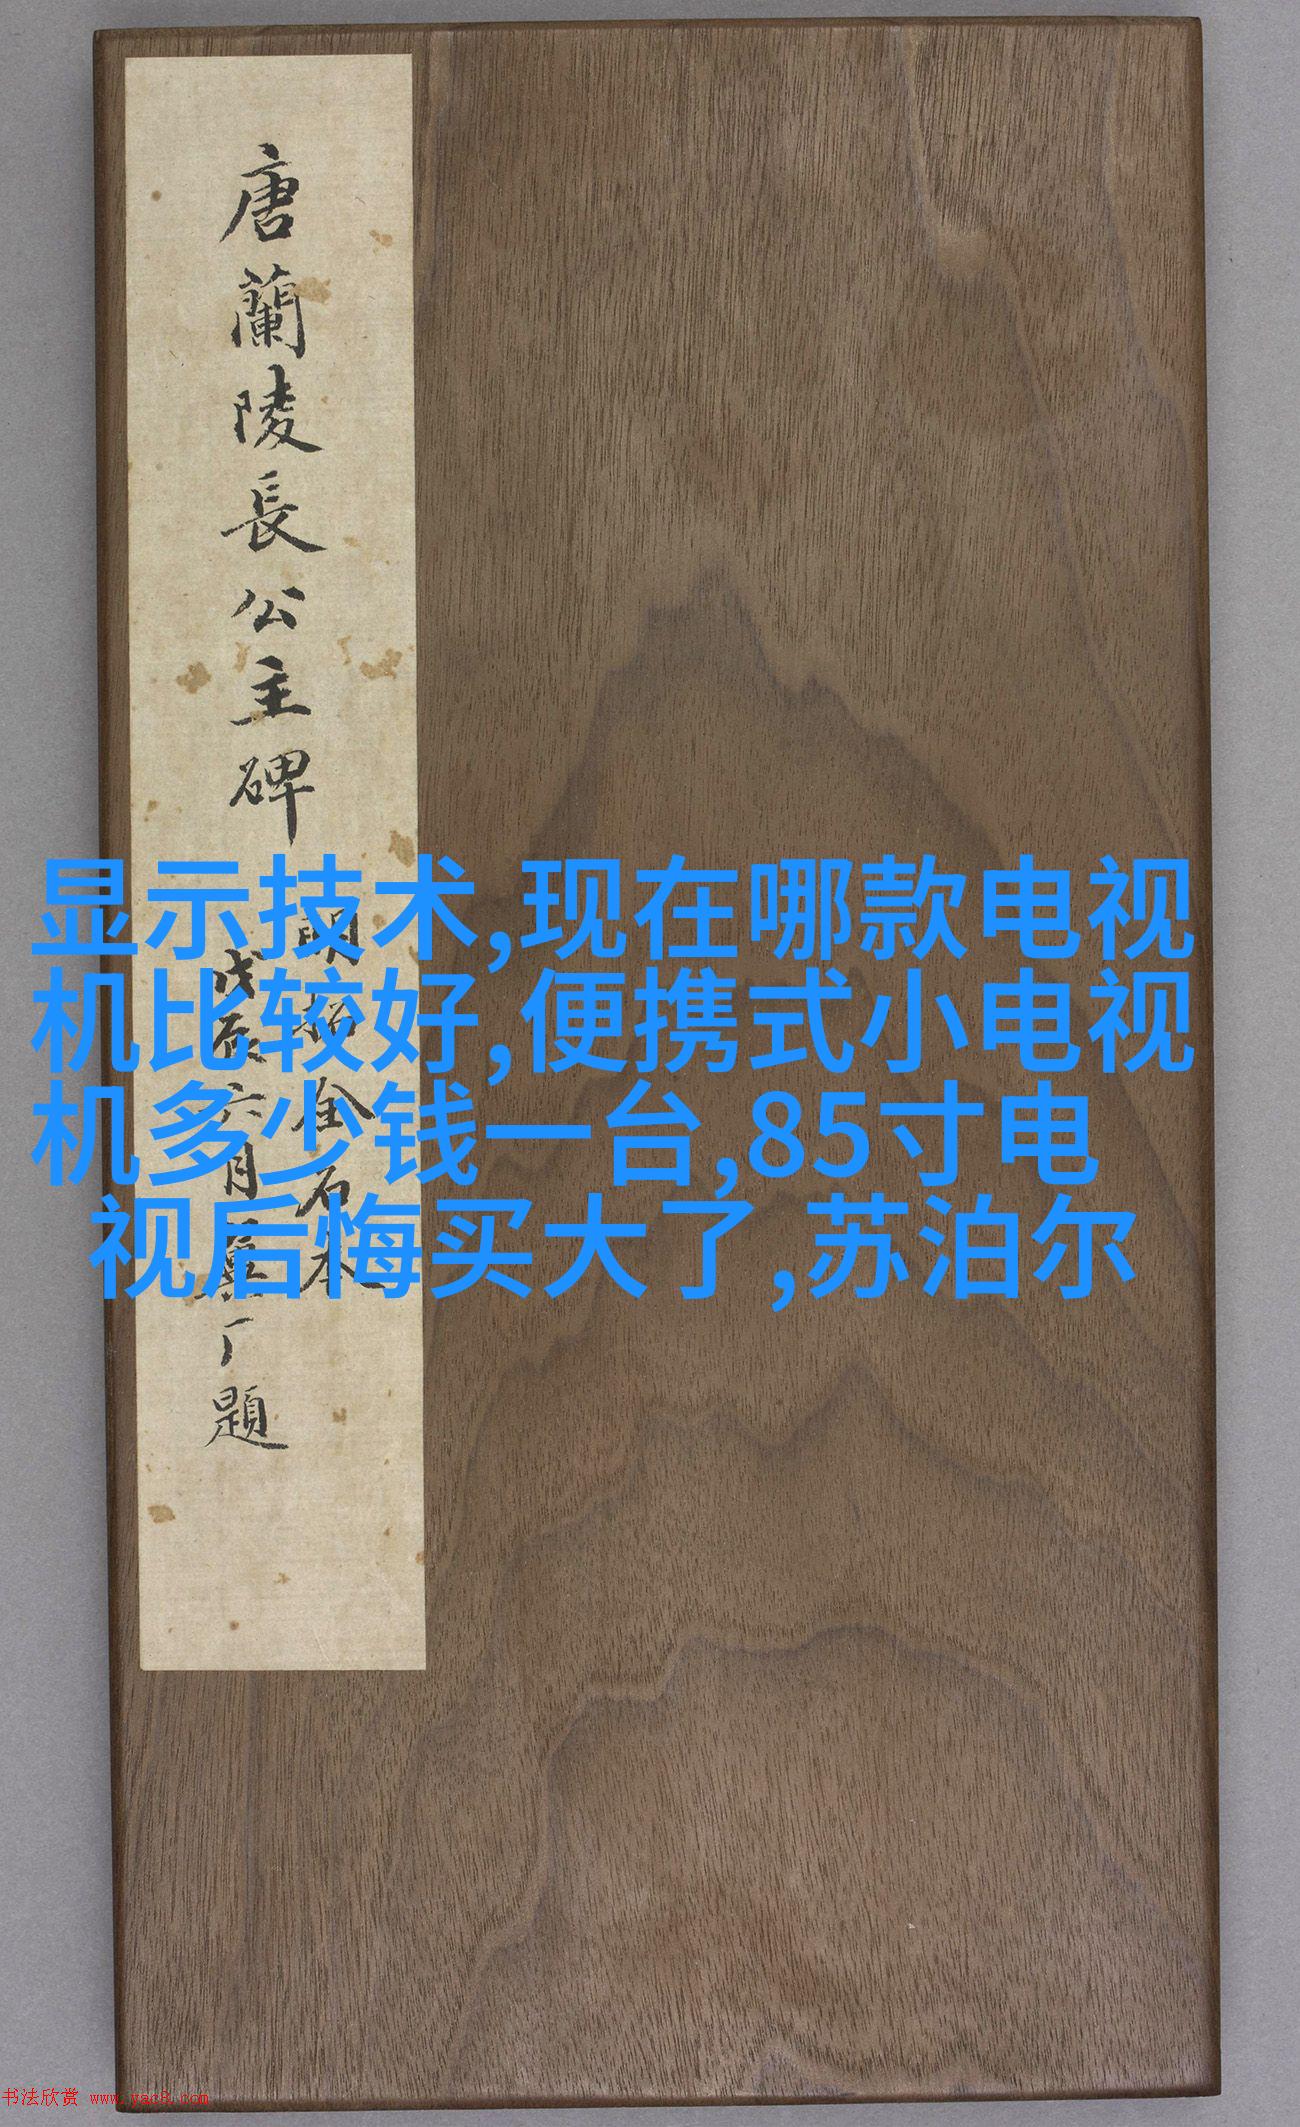 唐蘭陵長公主碑
明拓全石本
戊辰六月
厂題
显示技术,现在哪款电视
机比较好,便携式小电视
机多少钱一台,85寸电
视后悔买大了,苏泊尔
书法欣赏 www.yac8.com